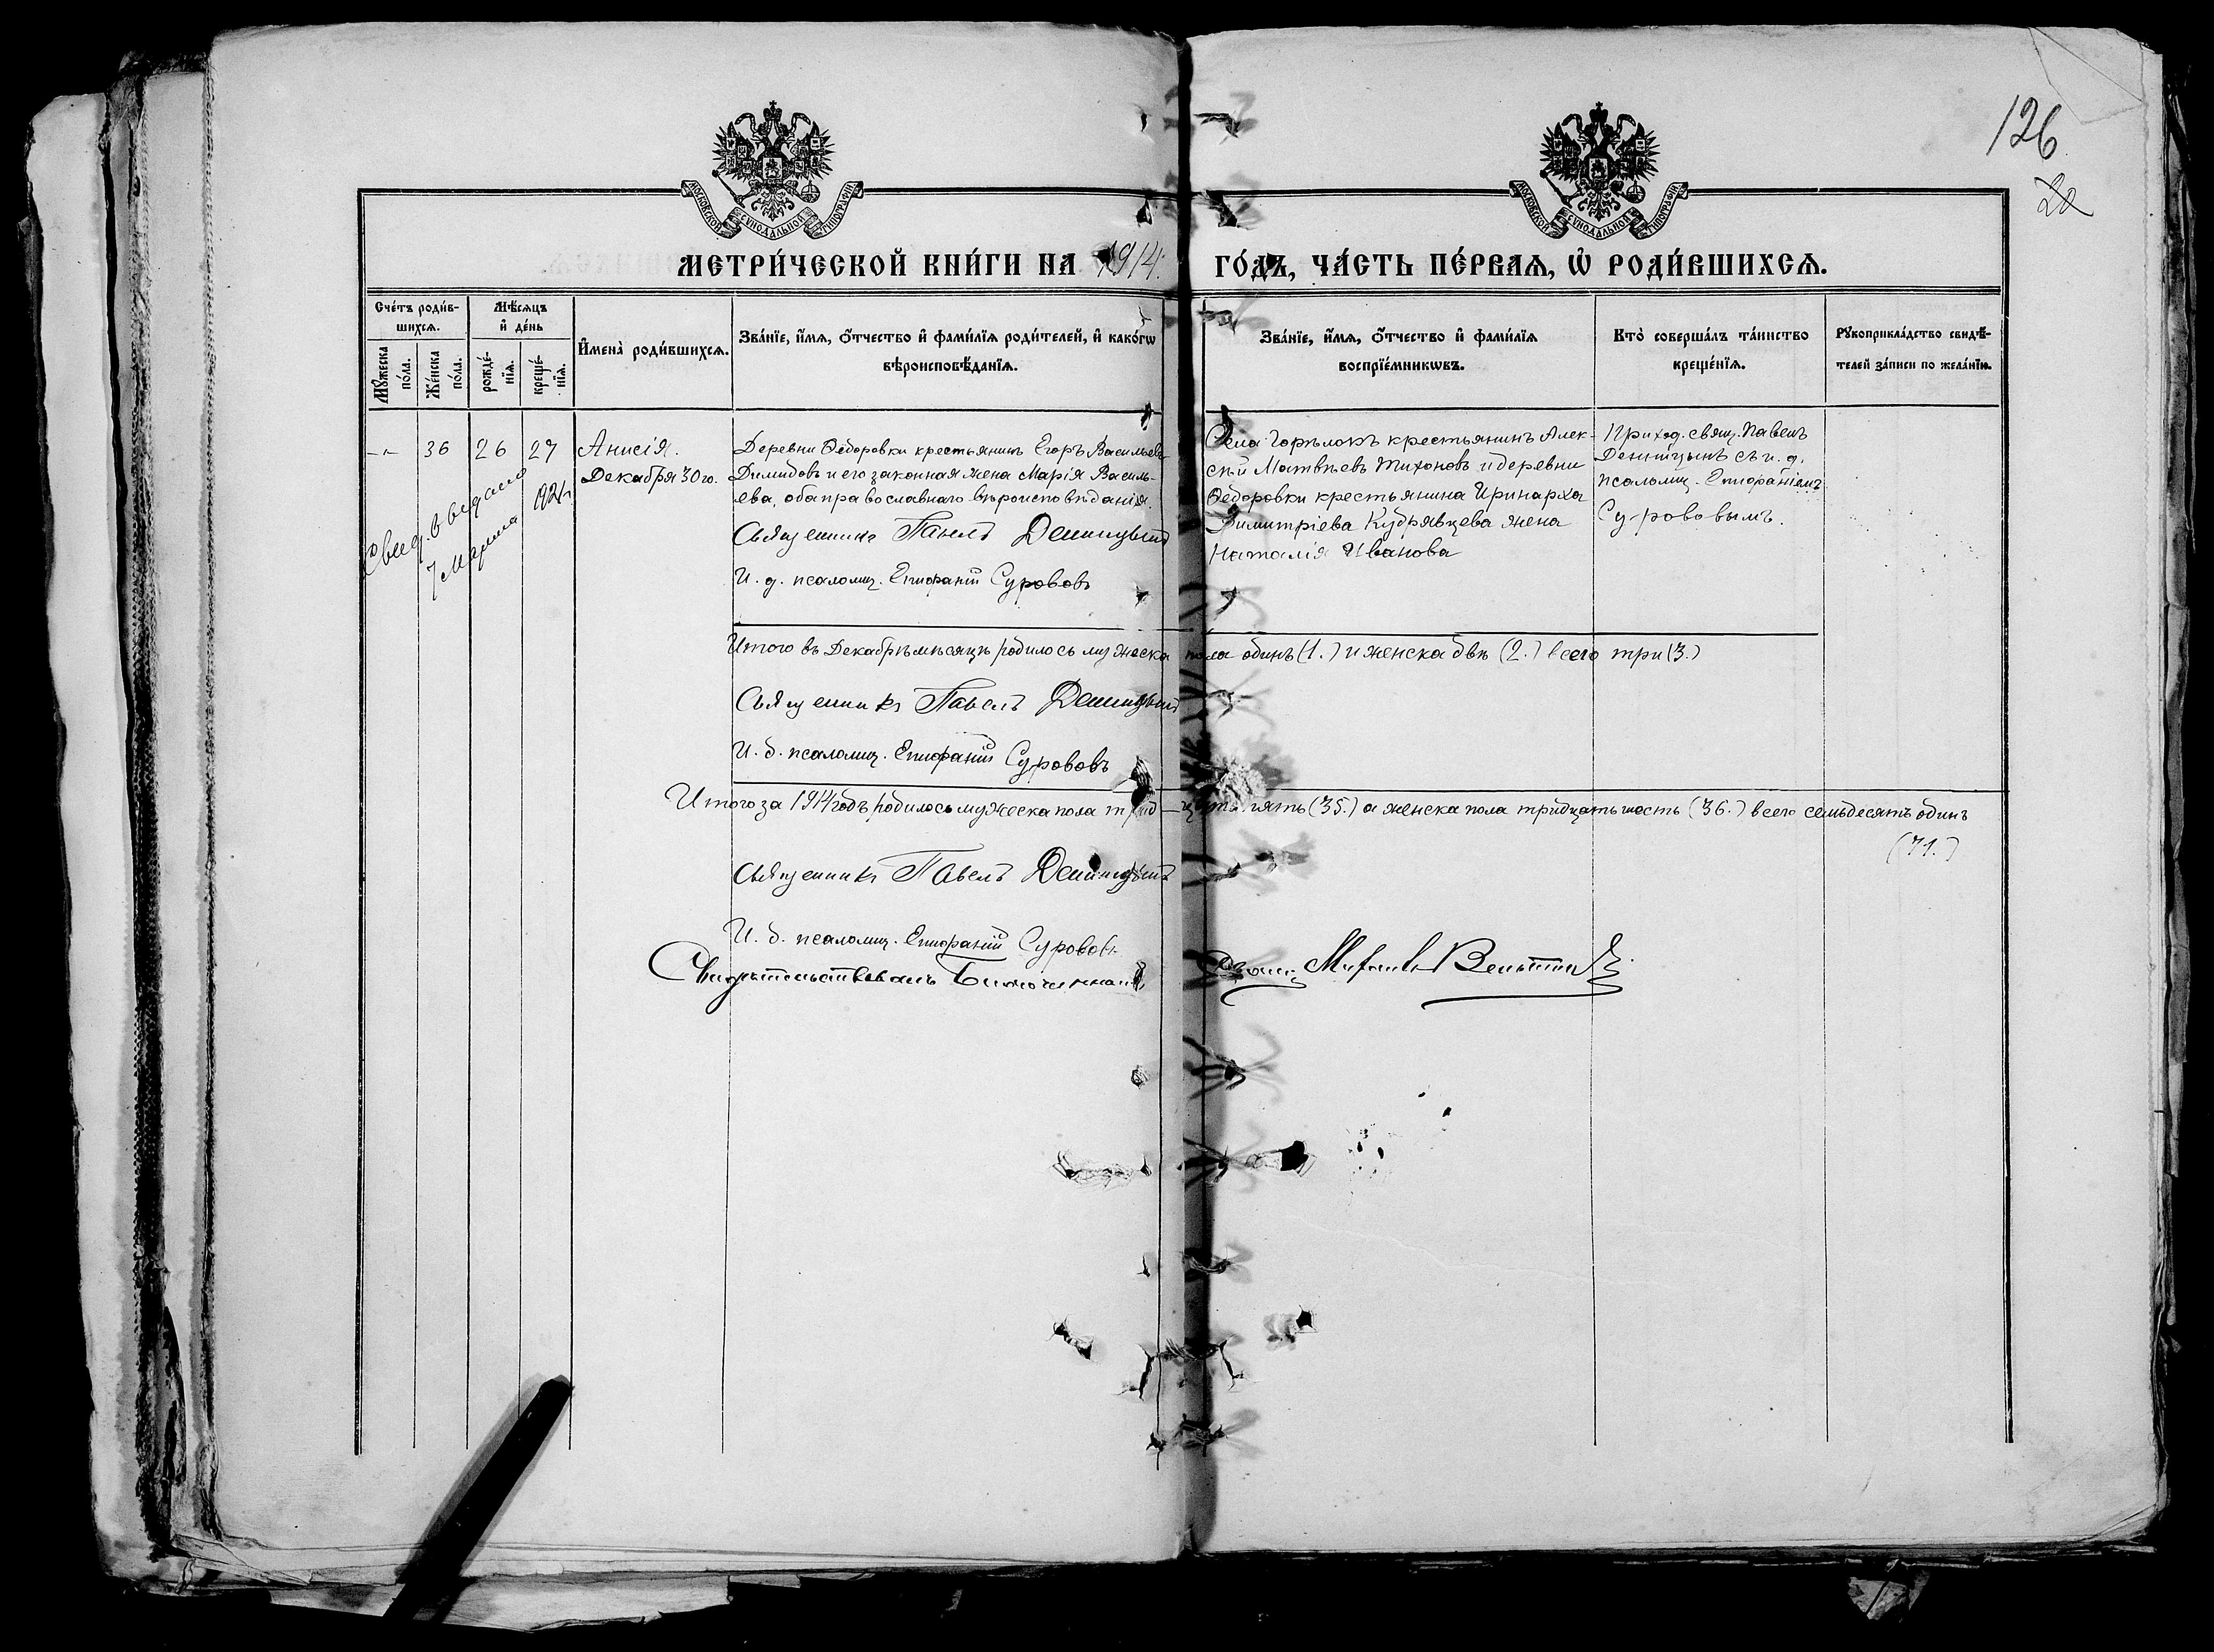 126
20
МОСКОВСКОЙ СѴНОДАЛЬНОЙ ТИПОГРАФІИ
МОСКОВСКОЙ СѴНОДАЛЬНОЙ ТИПОГРАФІИ
МЕТРИ́ЧЕСКОЙ КНИ́ГИ НА 1914. ГО́ДЪ, ЧА́СТЬ ПЕ́РВАЯ, Ѡ҆ РОДИ́ВШИХСЯ.
Сче́тъ роди́в-
шихся.
Мꙋ́жеска по́ла.
Же́нска по́ла.
Мѣ́сяцъ
и҆ де́нь
рожде́-
нїя.
креще́-
нїя.
И҆мена̀ роди́вшихся.
Зва́нїе, и҆́мя, ѻ҆́тчество и҆ фами́лїя роди́телей, и҆ како́гѡ
вѣроисповѣ́данїя.
Зва́нїе, и҆́мя, ѻ҆́тчество и҆ фами́лїя
воспрїе́мникѡвъ.
Кто̀ соверша́лъ та́инство
креще́нїя.
Рꙋкоприкла́дство свидѣ́-
телей за́писи по жела́нїю.
-"- 36 26 27
Анисія.
Декабря 30го.
Свид. выдано
7 Марта
192
Деревни Ѳедоровки крестьянинъ Егоръ Васильевъ
Димидовъ и его законная жена Марія Василь-
ева, оба православнаго вѣроисповѣданія.
Священникъ Павелъ Деницынъ
И. д. псаломщ. Епифаній Сурововъ
Села Горѣлокъ крестьянинъ Алек-
сѣй Матвѣевъ Тихоновъ и деревни
Ѳедоровки крестьянина Иринарха
Димитріева Кудрявцева жена
Наталія Иванова
Приход. свящ. Павелъ
Деницынъ съ и. д.
псаломщ. Епифаніемъ
Суrовымъ.
Итого въ Декабрѣ мѣсяцѣ родилось мужеска пола одинъ (1.) и женска двѣ (2.) всего три (3.)
Священникъ Павелъ Деницынъ
И. д. псаломщ. Епифаній Сурововъ
Итого за 1914 годъ родилось мужеска пола тридцать пять (35.) а женска пола тридцать шесть (36.) всего семьдесятъ одинъ
(71.)
Священникъ Павелъ Деницынъ
И. д. псаломщ. Епифаній Сурововъ
Свидѣтельствовалъ Благочинный